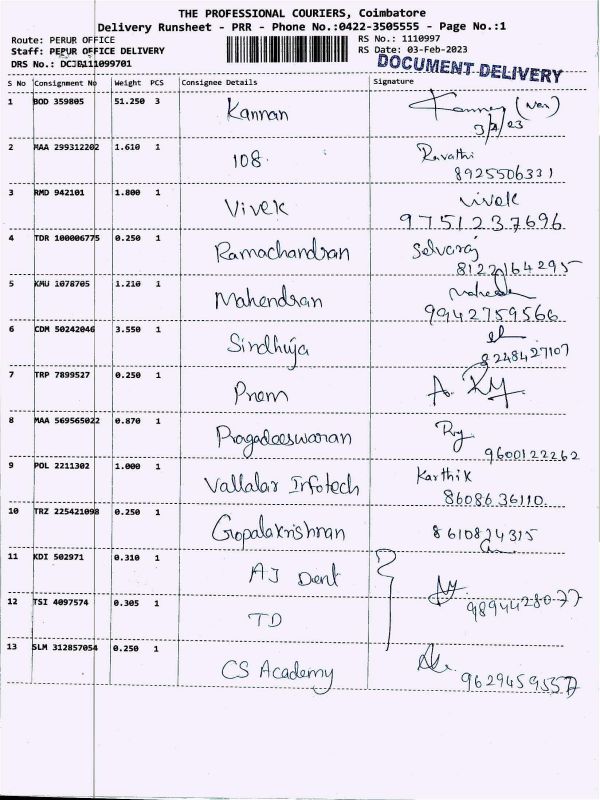 THE PROFESSIONAL COURIERS, Coimbatore
Delivery Runsheet - PRR - Phone No.:0422-3505555 - Page No.:1
Route: PERUR OFFICE RS No.: 1110997
Staff: PEPUR OFFICE DELIVERY RS Date: 03-Feb-2023
DRS No.: DCJB111099701 DOCUMENT DELIVERY
S No Consignment No Weight PCS Consignee Details Signature
1 BOD 359805 51.250 3 Kannan
2 MAA 299312202 1.610 1 108. Revathi
8925506331
3 RMD 942101 1.800 1 Vivek vivek
9751237696
4 TDR 100006775 0.250 1 Ramachandran Selvaraj
8122164295
5 KMU 1078705 1.210 1 Mahendran
9942759566
6 CDM 50242046 3.550 1 Sindhuja
8248427107
7 TRP 7899527 0.250 1 Prem
8 MAA 569565022 0.870 1 Pragadeeswaran
9600122262
9 POL 2211302 1.000 1 Vallalar Infotech Karthik
8608636110
10 TRZ 225421098 0.250 1 Gopalakrishnan 8610824315
11 KDI 502971 0.310 1 AJ Dent
9894428077
12 TSI 4097574 0.305 1 TD
13 SLM 312857054 0.250 1 CS Academy
9629459557